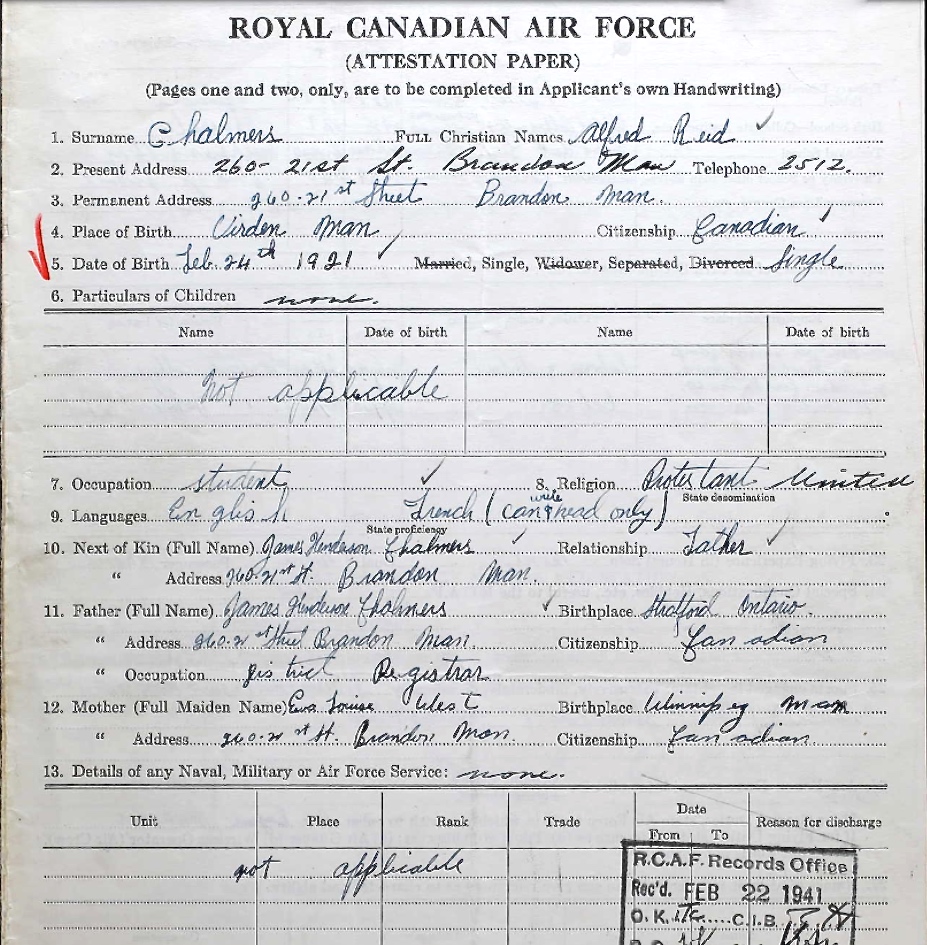 ROYAL CANADIAN AIR FORCE
(ATTESTATION PAPER)
(Pages one and two, only, are to be completed in Applicant's own Handwriting)
1. Surname Chalmers FULL Christian Names Alfred Reid
2. Present Address 260-21st St. Brandon Man Telephone 2512.
3. Permanent Address 260-21st Street Brandon Man.
4. Place of Birth Virden Man Citizenship Canadian
5. Date of Birth Feb. 24th 1921 Married, Single, Widower, Separated, Divorced Single
6. Particulars of Children none.
Name Date of birth Name Date of birth
not applicable
7. Occupation student 8. Religion Protestant United
State denomination
9. Languages English French (can write & read only)
State proficiency
10. Next of Kin (Full Name) James Henderson Chalmers Relationship Father
" Address 260-21st St. Brandon Man.
11. Father (Full Name) James Henderson Chalmers Birthplace Stratford Ontario.
" Address 260-21st Street Brandon Man. Citizenship Canadian
" Occupation District Registrar
12. Mother (Full Maiden Name) Eva Louise West Birthplace Winnipeg Man
" Address 260-21st St. Brandon Man. Citizenship Canadian
13. Details of any Naval, Military or Air Force Service: none.
Unit Place Rank Trade Date Reason for discharge
From To
not applicable
R.C.A.F. Records Office
Rec'd. FEB 22 1941
O.K. C.I.B.